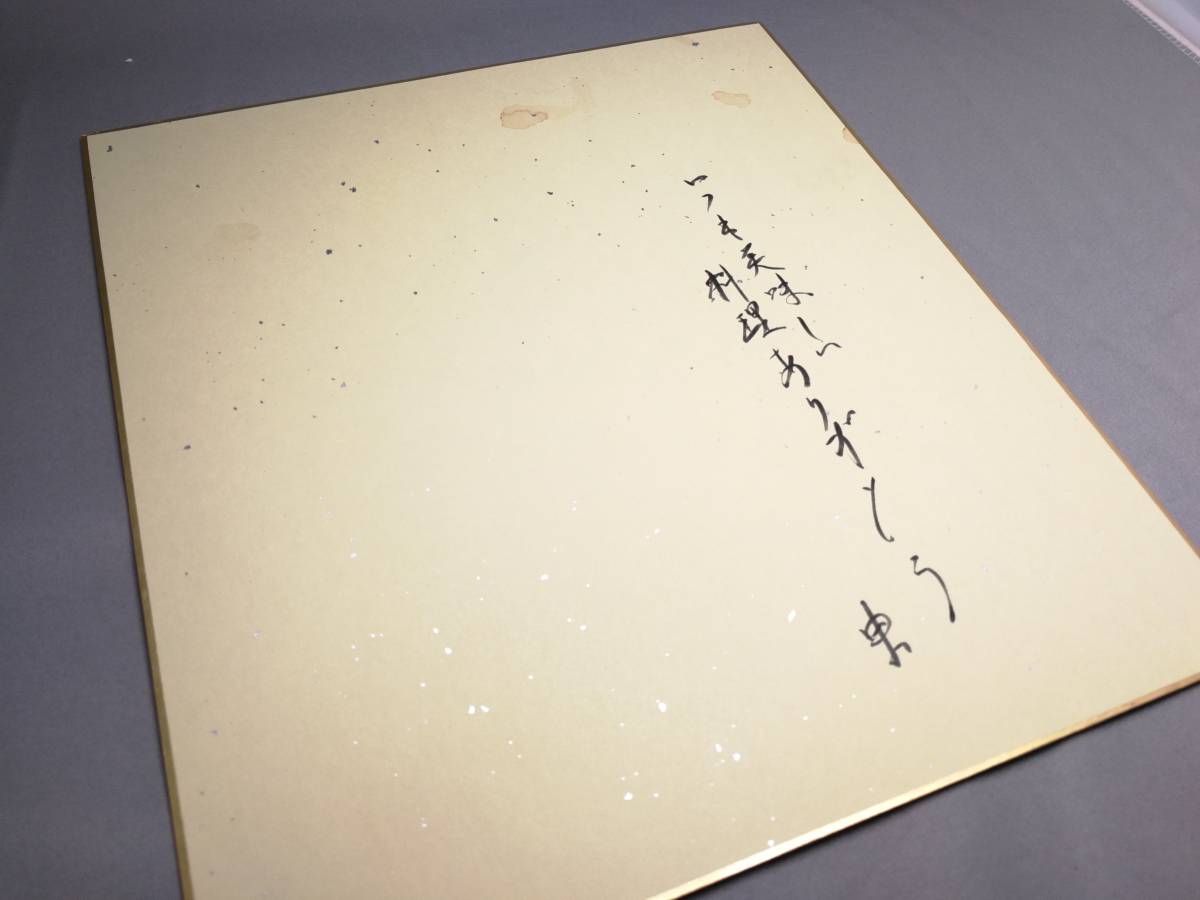 いつも美味しい
料理ありがとう
東